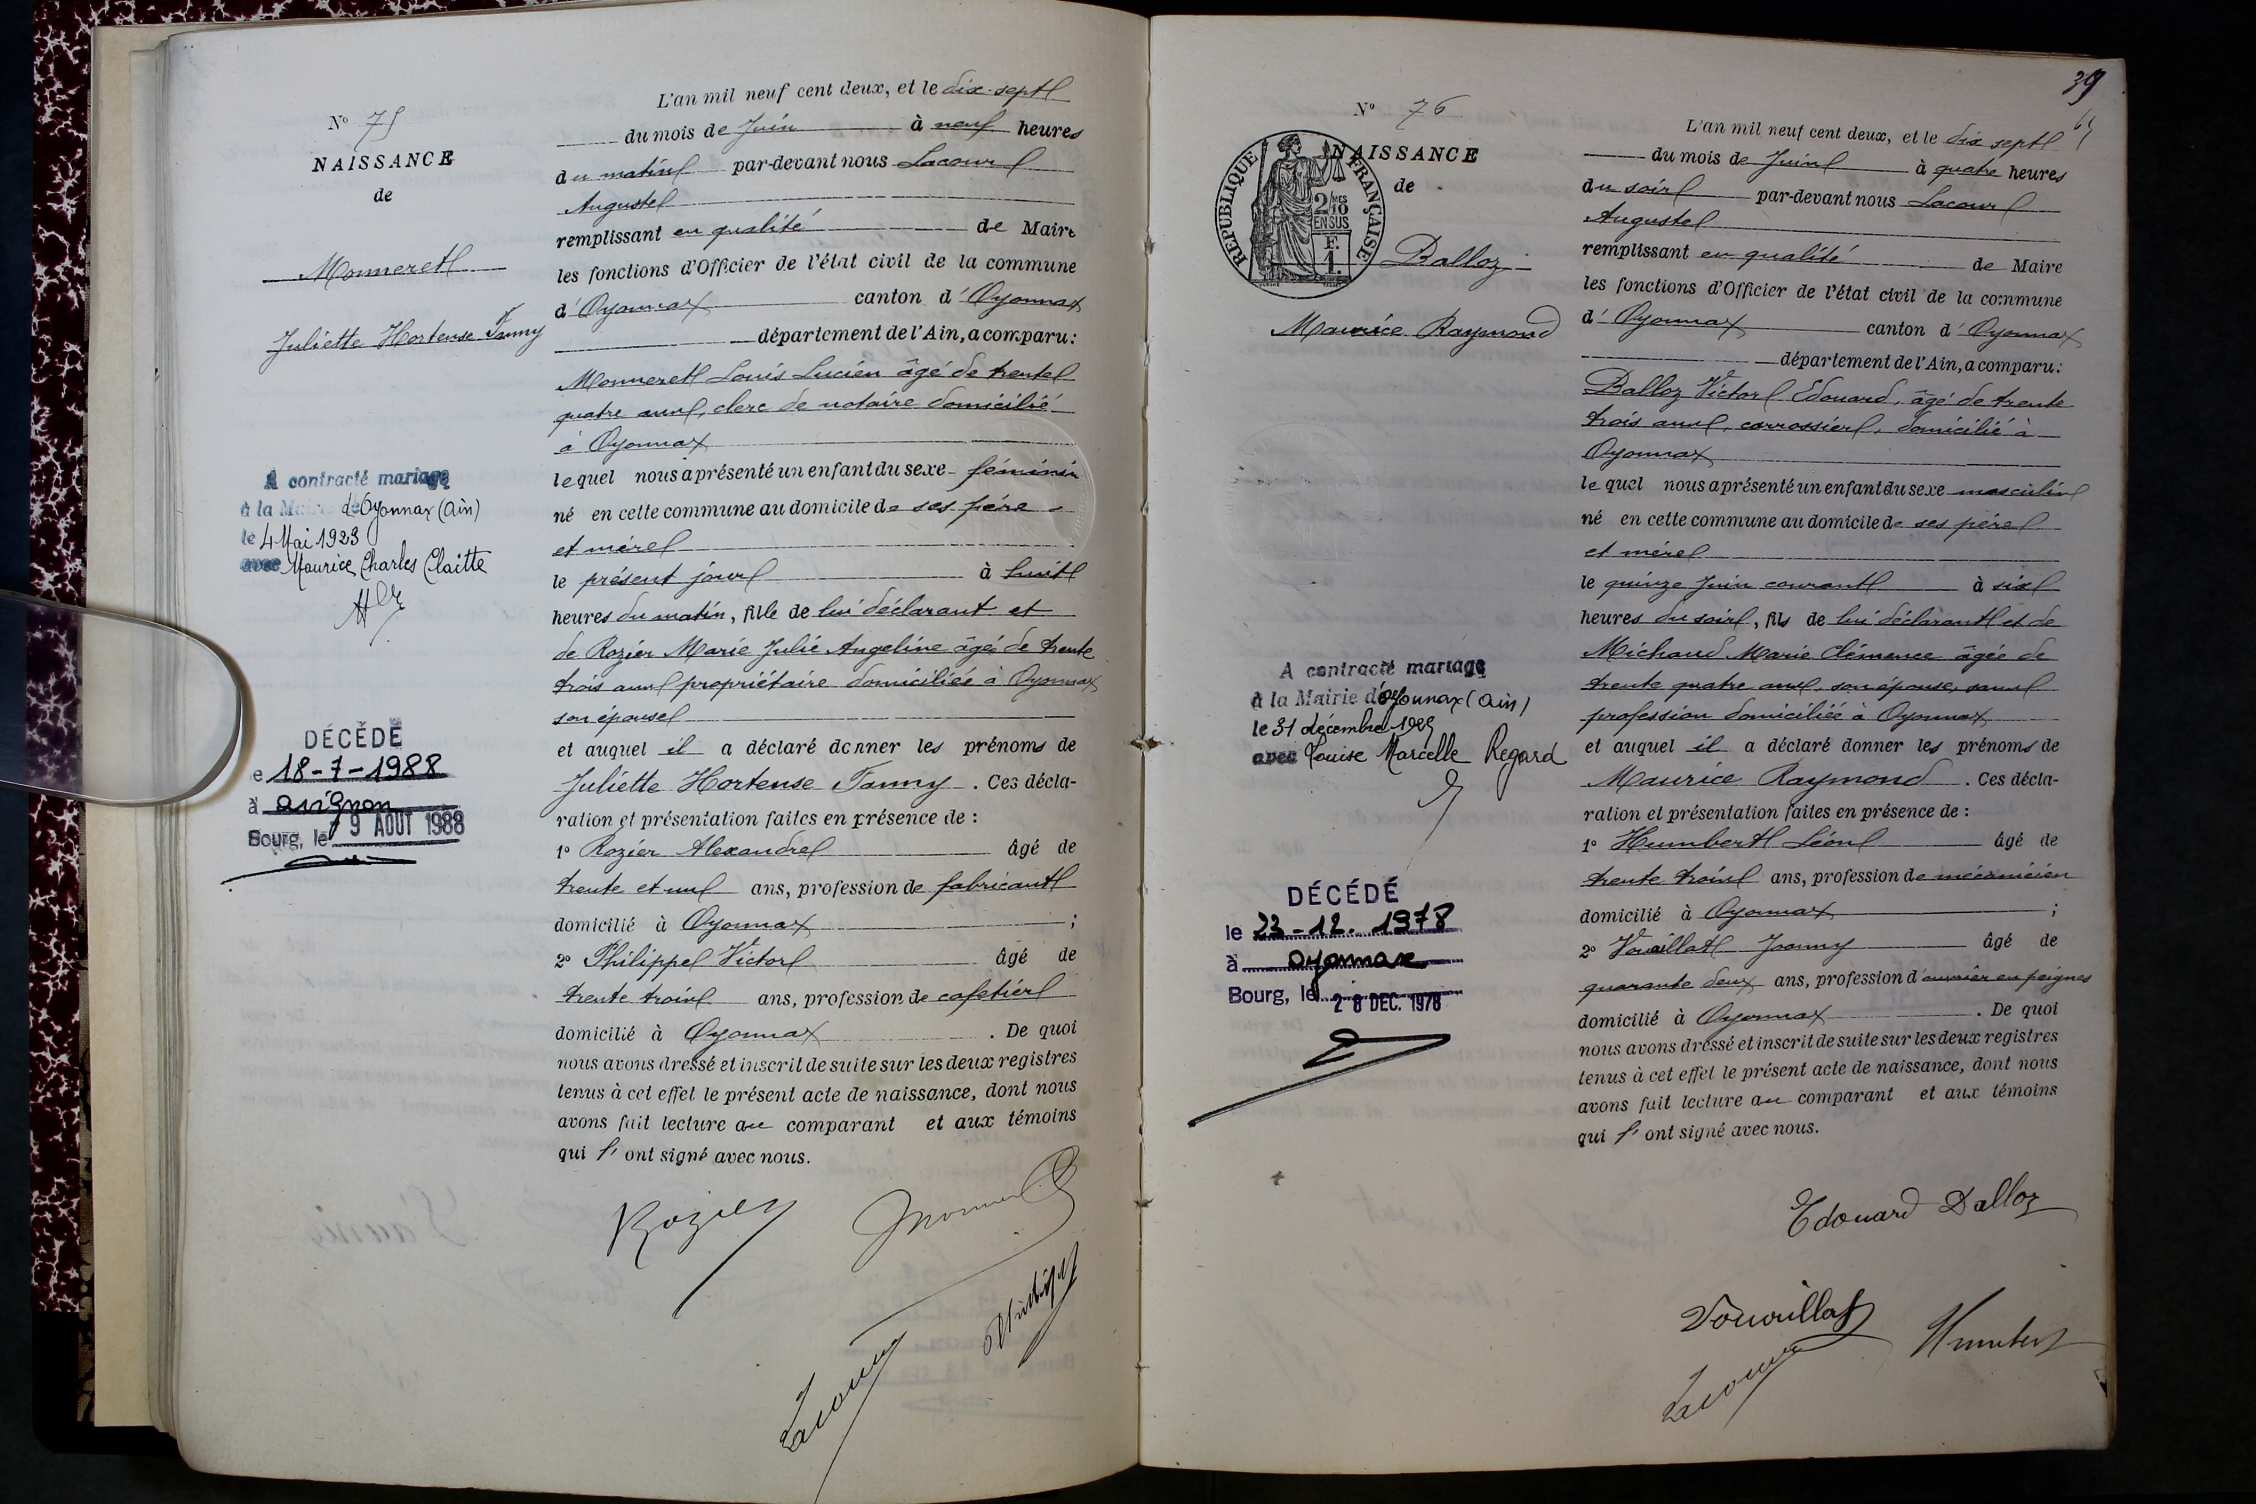 N° 75
NAISSANCE
de
Monneret
Juliette Hortense Fanny
A contracté mariage
à la Mairie d'Oyonnax (Ain)
le 4 Mai 1923
avec Maurice Charles Claitte
DÉCÉDÉ
le 18-7-1988
à avignon
Bourg, le 9 AOUT 1988
L'an mil neuf cent deux, et le dix-sept
du mois de Juin à neuf heures
du matin par-devant nous Lacour
Auguste
remplissant en qualité de Maire
les fonctions d'Officier de l'état civil de la commune
d'Oyonnax canton d'Oyonnax
département de l'Ain, a comparu:
Monneret Louis Lucien âgé de trente
quatre ans, clerc de notaire domicilié
à Oyonnax
lequel nous a présenté un enfant du sexe féminin
né en cette commune au domicile de ses père
et mère
le présent jour à huit
heures du matin, fille de lui déclarant et
de Rozier Marie Julie Angeline âgée de trente
trois ans propriétaire domiciliée à Oyonnax
son épouse
et auquel il a déclaré donner les prénoms de
Juliette Hortense Fanny. Ces décla-
ration et présentation faites en présence de :
1° Rozier Alexandre âgé de
trente et un ans, profession de fabricant
domicilié à Oyonnax ;
2° Philippe Victor âgé de
trente trois ans, profession de cafetier
domicilié à Oyonnax. De quoi
nous avons dressé et inscrit de suite sur les deux registres
tenus à cet effet le présent acte de naissance, dont nous
avons fait lecture au comparant et aux témoins
qui l'ont signé avec nous.
Rozier
Monneret
Philippe
Lacour
39
N° 76
NAISSANCE
de
REPUBLIQUE FRANÇAISE
2/10 MES
EN SUS
F.
1.
Dalloz
Maurice Raymond
A contracté mariage
à la Mairie d'Oyonnax (Ain)
le 31 décembre
avec Louise Marcelle Regard
DÉCÉDÉ
le 23-12.1978
à oyonnax
Bourg, le 28 DEC. 1978
L'an mil neuf cent deux, et le dix sept
du mois de Juin à quatre heures
du soir par-devant nous Lacour
Auguste
remplissant en qualité de Maire
les fonctions d'Officier de l'état civil de la commune
d'Oyonnax canton d'Oyonnax
département de l'Ain, a comparu:
Dalloz Victor Edouard, âgé de trente
trois ans, carrossier, domicilié à
Oyonnax
lequel nous a présenté un enfant du sexe masculin
né en cette commune au domicile de ses père
et mère
le quinze Juin courant à six
heures du soir, fils de lui déclarant et de
Michaud Marie Clémence âgée de
trente quatre ans, son épouse, sans
profession domiciliée à Oyonnax
et auquel il a déclaré donner les prénoms de
Maurice Raymond. Ces décla-
ration et présentation faites en présence de :
1° Humbert Léon âgé de
trente trois ans, profession de mécanicien
domicilié à Oyonnax ;
2° Vouaillat Joanny âgé de
quarante deux ans, profession d'ouvrier en peignes
domicilié à Oyonnax. De quoi
nous avons dressé et inscrit de suite sur les deux registres
tenus à cet effet le présent acte de naissance, dont nous
avons fait lecture au comparant et aux témoins
qui l'ont signé avec nous.
Edouard Dalloz
Vouaillat
Humbert
Lacour